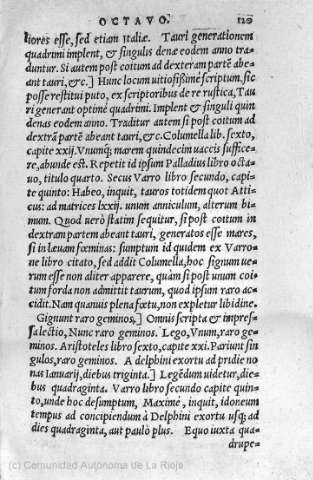 OCTAVO. 120
liores esse, sed etiam Italiæ. Tauri generationem
quadrimi implent, & singulis denæ eodem anno tra-
duntur. Si autem post coitum ad dexteram partē abe-
ant tauri, &c.] Hunc locum uitiosissimè scriptum, sic
posse restitui puto, ex scriptoribus de re rustica, Tau
ri generant optimè quadrimi. Implent & singuli quin
denas eodem anno. Traditur autem si post coitum ad
dextrā partē abeant tauri, &c. Columella lib. sexto,
capite xxij. Vnumq; marem quindecim uaccis suffice-
re, abunde est. Repetit id ipsum Palladius libro octa-
uo, titulo quarto. Secus Varro libro secundo, capi-
te quinto: Habeo, inquit, tauros totidem quot Atti-
cus: ad matrices lxxij. unum anniculum, alterum bi-
mum. Quod uerò statim sequitur, si post coitum in
dextram partem abeant tauri, generatos esse mares,
si in læuam fœminas: sumptum id quidem ex Varro-
ne libro citato, sed addit Columella, hoc signum ue-
rum esse non aliter apparere, quàm si post unum coi-
tum forda non admittit taurum, quod ipsum raro ac-
cidit. Nam quanuis plena fœtu, non expletur libidine.
Gignunt raro geminos,] Omnis scripta & impres-
sa lectio, Nunc raro geminos. Lego, Vnum, raro ge-
minos. Aristoteles libro sexto, capite xxi. Pariunt sin
gulos, raro geminos. A delphini exortu ad pridie no
nas Ianuarij, diebus triginta.] Legēdum uidetur, die-
bus quadraginta. Varro libro secundo capite quin-
to, unde hoc desumptum, Maximè, inquit, idoneum
tempus ad concipiendum à Delphini exortu usq; ad
dies quadraginta, aut paulò plus. Equo iuxta qua-
drupe-
(c) Comunidad Autónoma de La Rioja